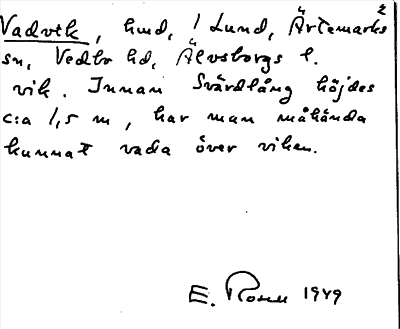 Vadvik, hmd, 1 Lund, Ärtemarks
sn, Vedbo hd, Älvsborgs l.
vik. Innan Svärdlång höjdes
c:a 1,5 m, har man måhända
kunnat vada över viken.
E. Rosell 1949